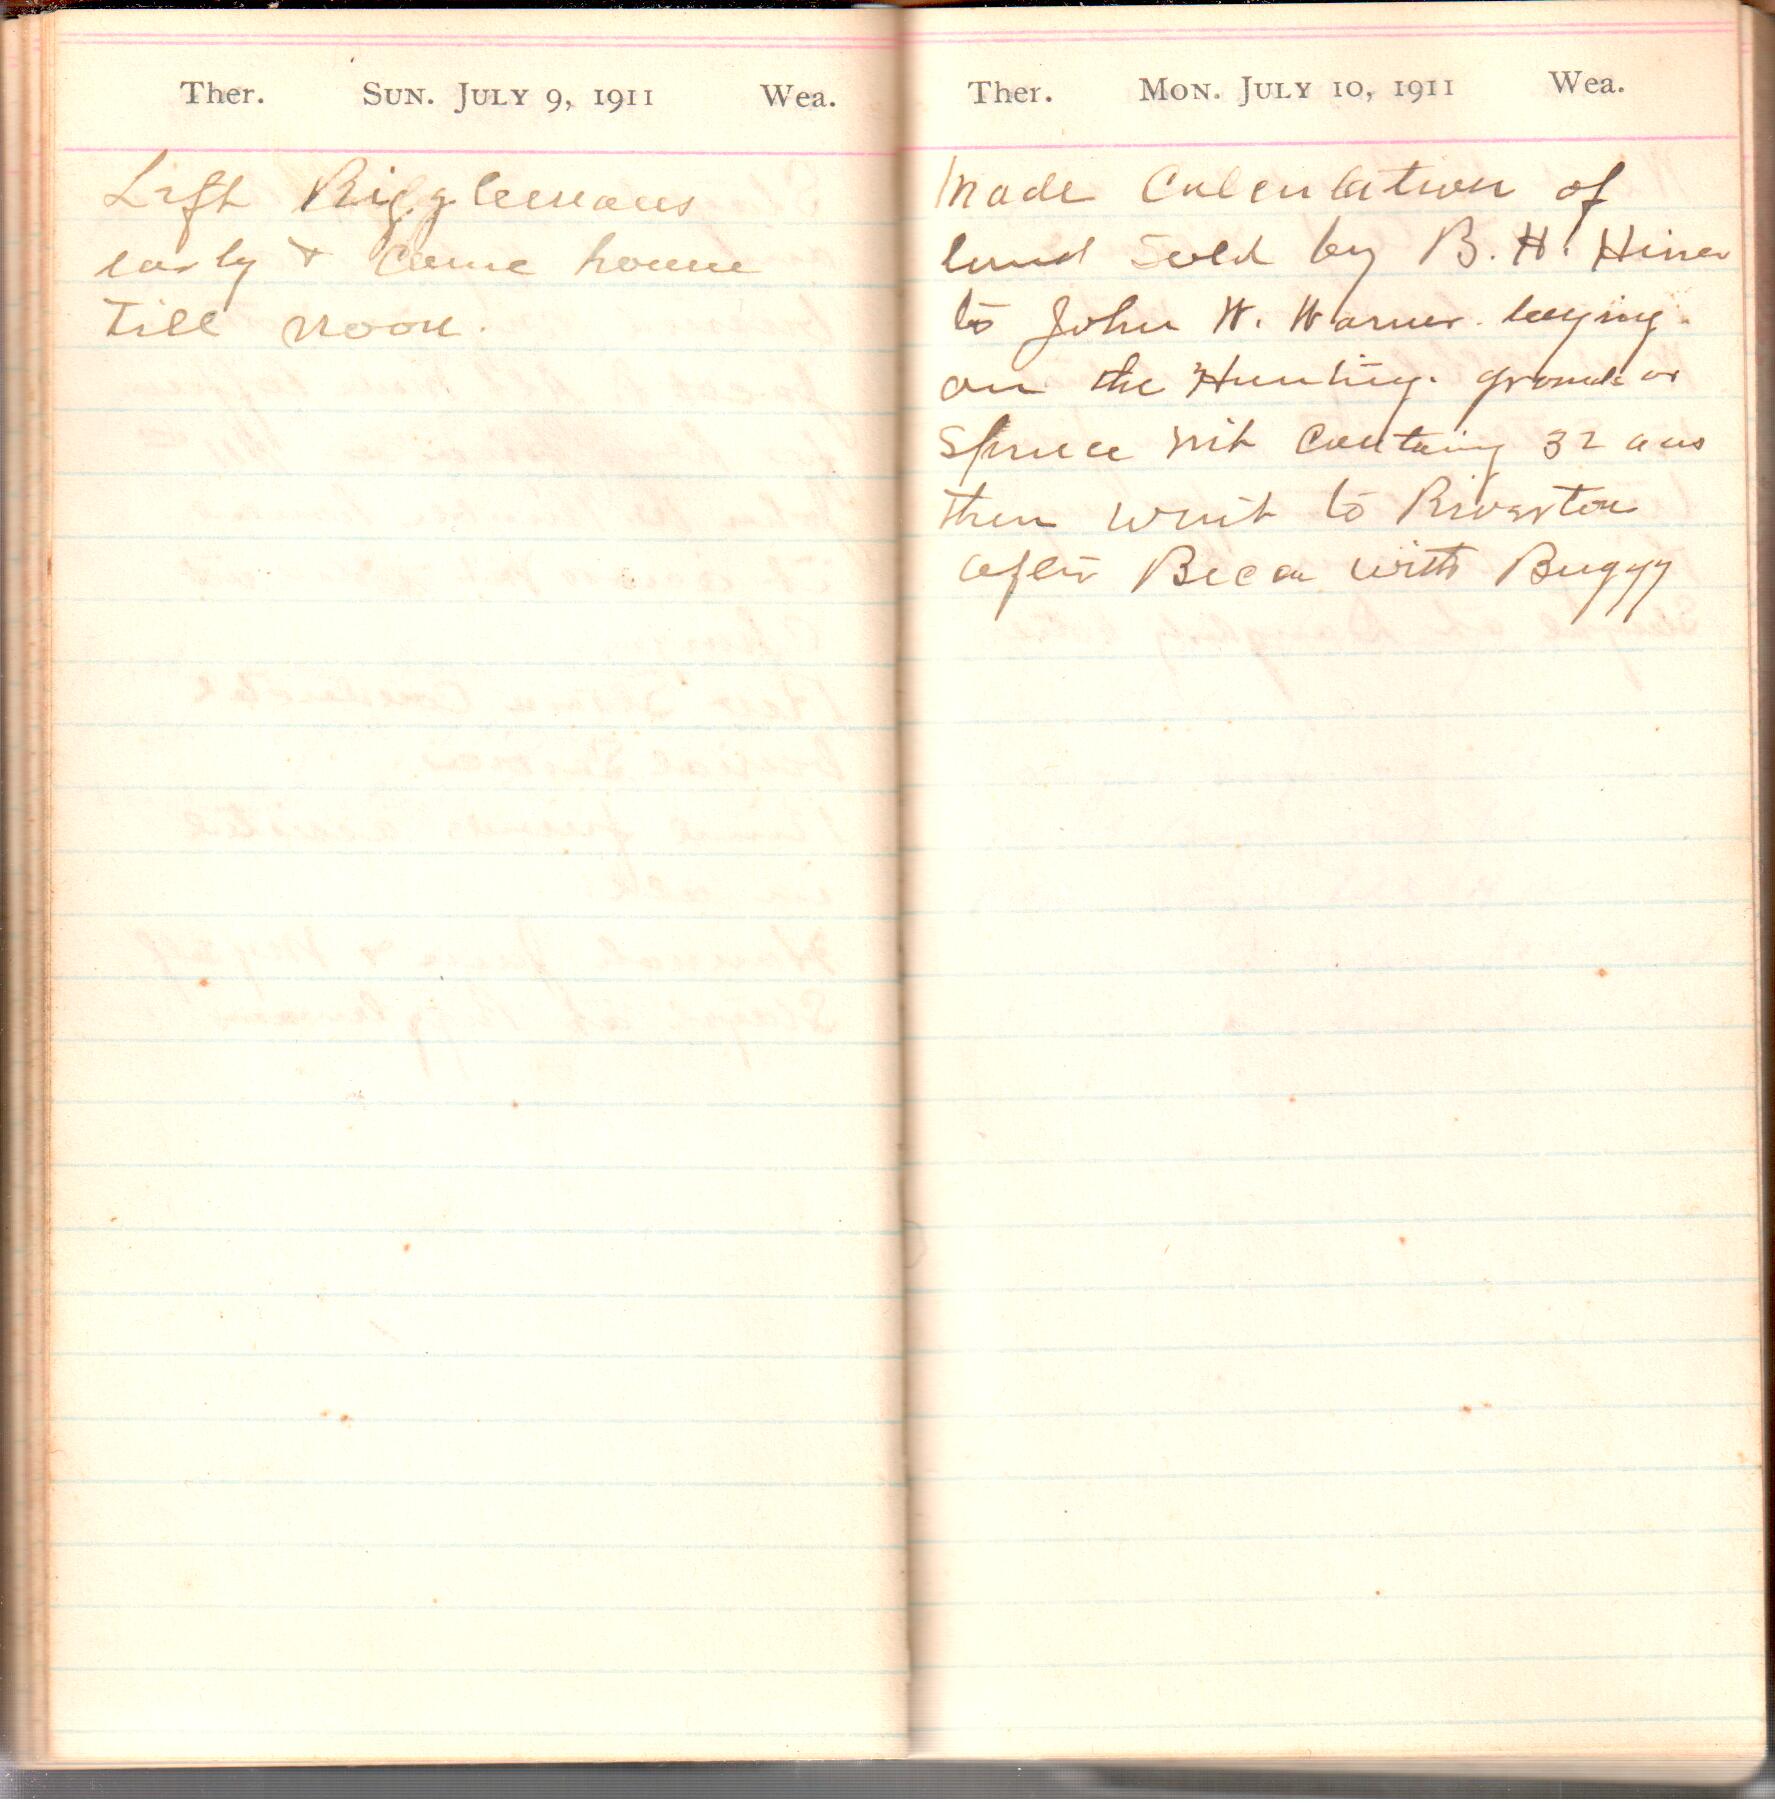 Ther. Sun. July 9, 1911 Wea.
Left Rigglemans
early & Came home
Till noon.
Ther. Mon. July 10, 1911 Wea.
Made Calculation of
land Sold by B. H. Hiner
to John W. Warner. laying
on the Hunting. ground or
Spruce Containing 32 acrs
then went to Riverton
after with Buggy